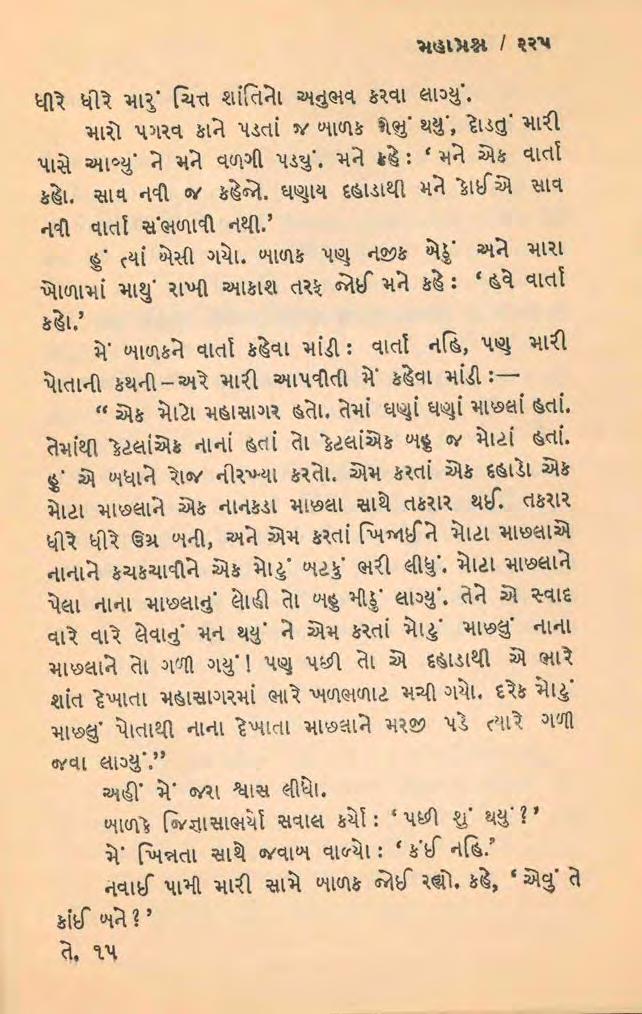 મહાપ્રશ્ન / ૨૨૫
ધીરે ધીરે મારું ચિત્ત શાંતિનો અનુભવ કરવા લાગ્યું.
મારો પગરવ કાને પડતાં જ બાળક ઊભું થયું, દોડતું મારી
પાસે આવ્યું ને મને વળગી પડયું. મને કહે : ‘ મને એક વાર્તા
કહો. સાવ નવી જ કહેજો. ઘણાય દહાડાથી મને કોઈએ સાવ
નવી વાર્તા સંભળાવી નથી.’
હું ત્યાં બેસી ગયો. બાળક પણ નજીક બેઠું અને મારા
ખોળામાં માથું રાખી આકાશ તરફ જોઈ મને કહે : ‘ હવે વાર્તા
કહો.’
મેં બાળકને વાર્તા કહેવા માંડી : વાર્તા નહિ, પણ મારી
પોતાની કથની – અરે મારી આપવીતી મેં કહેવા માંડી :—
“ એક મોટો મહાસાગર હતો. તેમાં ઘણાં ઘણાં માછલાં હતાં.
તેમાંથી કેટલાંએક નાનાં હતાં તો કેટલાંએક બહુ જ મોટાં હતાં.
હું એ બધાને રોજ નીરખ્યા કરતો. એમ કરતાં એક દહાડો એક
મોટા માછલાને એક નાનકડા માછલા સાથે તકરાર થઈ. તકરાર
ધીરે ધીરે ઉગ્ર બની, અને એમ કરતાં ખિજાઈને મોટા માછલાએ
નાનાને કચકચાવીને એક મોટું બટકું ભરી લીધું. મોટા માછલાને
પેલા નાના માછલાનું લોહી તો બહુ મીઠું લાગ્યું. તેને એ સ્વાદ
વારે વારે લેવાનું મન થયું ને એમ કરતાં મોટું માછલું નાના
માછલાને તો ગળી ગયું ! પણ પછી તો એ દહાડાથી એ ભારે
શાંત દેખાતા મહાસાગરમાં ભારે ખળભળાટ મચી ગયો. દરેક મોટું
માછલું પોતાથી નાના દેખાતા માછલાને મરજી પડે ત્યારે ગળી
જવા લાગ્યું.”
અહીં મેં જરા શ્વાસ લીધો.
બાળકે જિજ્ઞાસાભર્યો સવાલ કર્યો : ‘ પછી શું થયું ? ’
મેં ખિન્નતા સાથે જવાબ વાળ્યો : ‘ કંઈ નહિ.’
નવાઈ પામી મારી સામે બાળક જોઈ રહ્યો. કહે, ‘ એવું તે
કાંઈ બને ? ’
તે. ૧૫